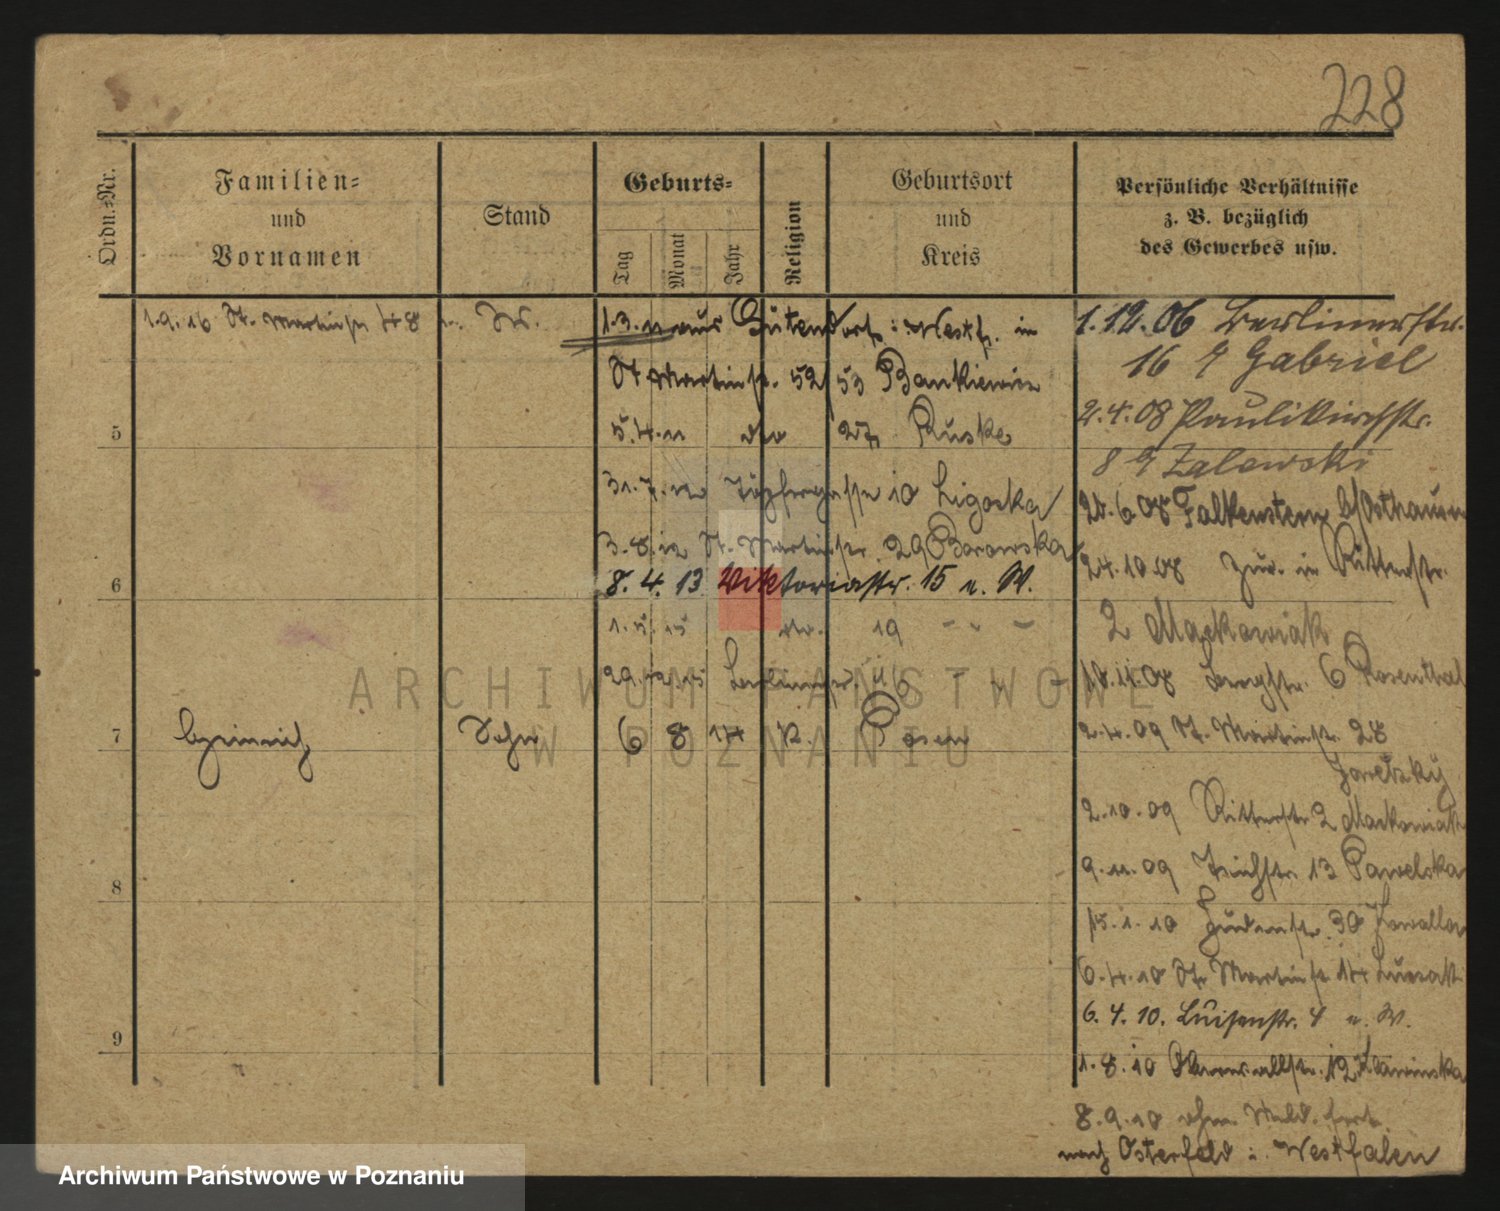 228
Ordn.=Nr.
Familien=
und
Vornamen
Stand
Geburts=
Tag
Monat
Jahr
Religion
Geburtsort
und
Kreis
Persönliche Verhältnisse
z. B. bezüglich
des Gewerbes usw.
1.9.16 St. Martinstr 48
1.3.11 aus Westf. in
St Martinstr. 52/53 Bankiewicz
5.4.11 27 Ruske
31.7.12 10 Ligocka
3.8.12 St. Martinstr. 29 Borowska
8.4.13 Viktoriastr. 15 u. W.
1.5.15 do. 19 - - -
29.12.15 Berlinerstr. 16 - - -
5
6
7
Heinrich Sohn 6 8 14 K. Posen
8
9
1.12.06 Berlinerstr.
16 Gabriel
2.4.08 Paulikirchstr.
8 Zalewski
Falkenstein
24.10.08 zur. in Ritterstr.
2 Maćkowiak
18.11.08 Bergstr. 6 Rosenthal
2.4.09 St. Martinstr. 28
Jaretzky
2.10.09 Ritterstr 2 Maćkowiak
9.11.09 Teichstr. 13 Pawelska
15.1.10 Judenstr. 30 Kowalla
6.4.10 St. Martinstr 14
6.4.10. Luisenstr. 4 u. W.
1.8.10 12
8.9.10 ohne Meld. fort
nach Osterfeld i. Westfalen
ARCHIWUM PAŃSTWOWE
W POZNANIU
Archiwum Państwowe w Poznaniu